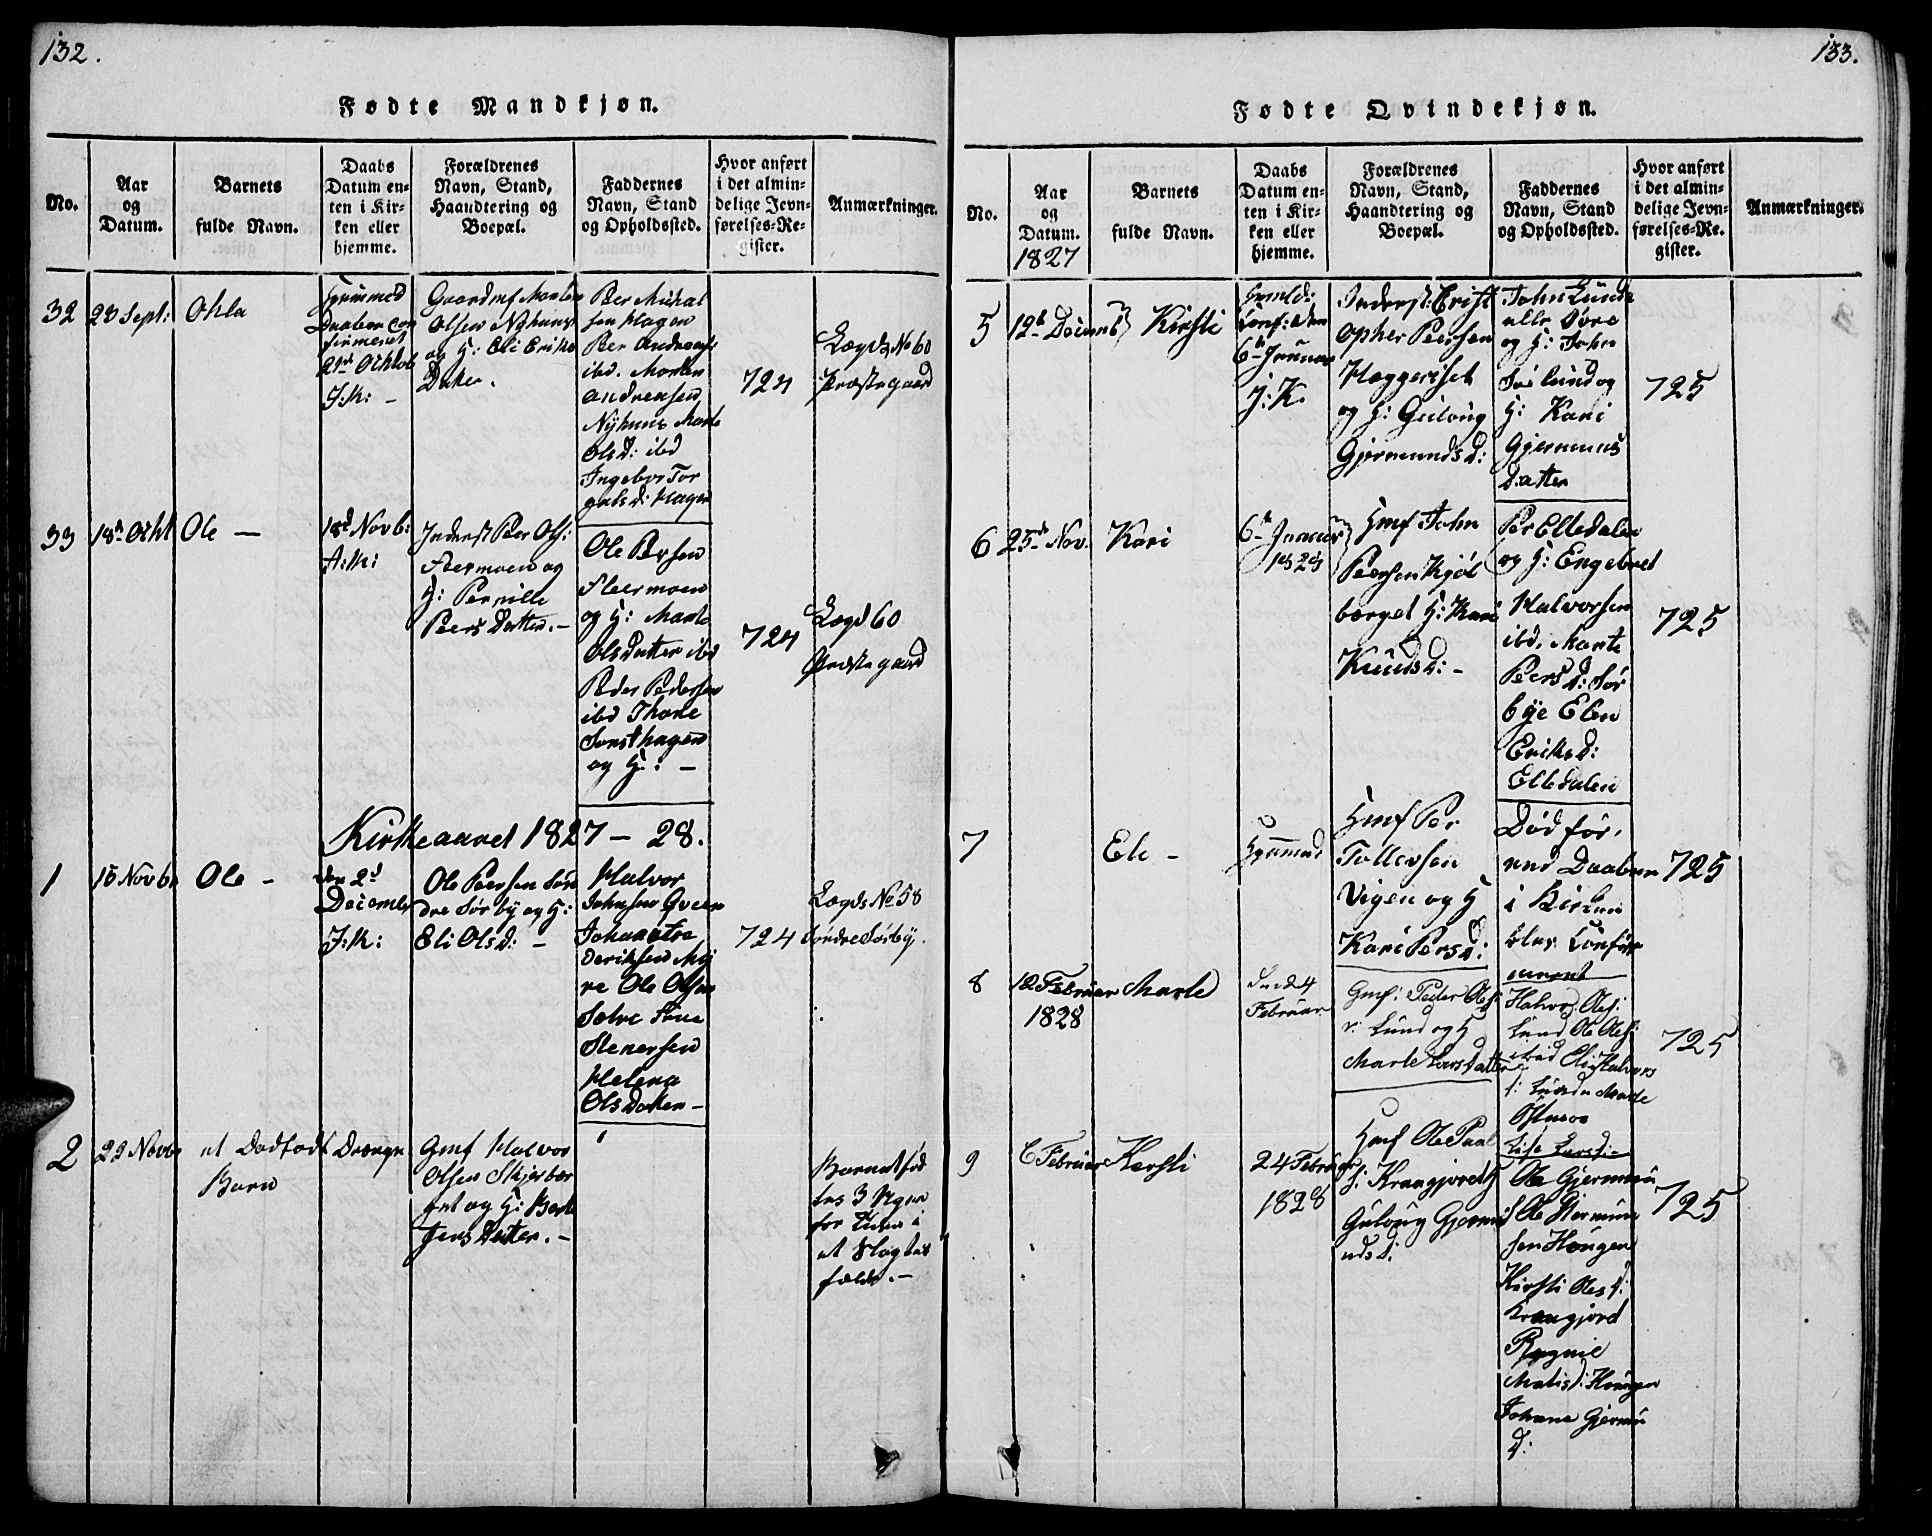 132.
Fødte Mandkjøn.
No.
Aar
og
Datum.
Barnets
fulde Navn.
Daabs
Datum en-
ten i Kir-
ken eller
hjemme.
Forældrenes
Navn, Stand,
Haandtering og
Boepæl.
Faddernes
Navn, Stand
og Opholdssted.
Hvor anført
i det almin-
delige Jevn-
førelses-Re-
gister.
Anmærkninger.
32
28 Sept:
Ohla
Daaben con
firmeret
21de Octob
I.K: -
Gaardmf Morten
Olsen Nyhuus
og H: Eli Eriks
Datter.
Per Michal
sen Hagen
Per Andreas
ibd. Morten
Andreasen
Nyhuus Marte
Olsd: ibd
Ingebor Tor
galsd: Hagen
724
Lægds No 60
Præstegaard
33
18de Octbr
Ole -
18d Novb:
A:K:
Inderst Peer Ols:
Steermoen og
H: Pernille
Peers Datter. -
Ole Persen
Steermoen
og H: Marte
Olsdatter ibd
Peder Pedersen
ibd Thore
Sorsthagen
og H: -
724
Lægd 60
Præstegaard
Kirkeaaret 1827 - 28.
1
16 Novbr
Ole -
den 2d
December
I:K:
Ole Peersen Søn
dre Sørby og H:
Eli Olsd: -
Halvor
Johnsen Qveen
Johan
deriksen My
re Ole Olsen
Stenersen
Helena
Olsdatter -
724
Lægds No 58
Søndre Sørby.
2
29 Novbr
et Dødfødt Drenge
Barn
Gmf Halvor
Olsen Skjerber
get og H: Berte
Jens Datter. -
Barnet fød
tes 3 Uger
for Tiden i
et Slagtil
fælde. -
133.
Fødte Qvindekjøn.
No.
Aar
og
Datum.
1827
Barnets
fulde Navn.
Daabs
Datum en-
ten i Kir-
ken eller
hjemme.
Forældrenes
Navn, Stand,
Haandtering og
Boepæl.
Faddernes
Navn, Stand
og Opholdssted.
Hvor anført
i det almin-
delige Jevn-
førelses-Re-
gister.
Anmærkninger.
5
12te Decemb
Kirsti
Hjemd:
Conf: den
6te Januar
I: K.
Inderst: Crist
opher Peersen
Haggeriset
og H: Guloug
Gjermundsd:
John Lunde
eller Svee
og H: John
Svelund og
H: Kari
Gjermunds
Datter
725
6
25de Nov.
Kari
6te Januar
1828
Hmf John
Peersen Kjøl
berget H: Kari
Knudsd: -
Per Elledalen
og H: Engebret
Halvorsen
ibd. Marte
Peersd: Sør
bye Elen
Eriksd:
Elledalen
725
7
Eli -
Hjemmed
Hmf Per
Tollevsen
Vigen og H
Kari Persd:
Død før.
end Daaben
i Kirken
blev Confir
meret
725
8
12 Februar
1828
Marte
Februar
Gmf: Peder Ols:
Lund og H
Marte Larsdatter
Halvor Ols:
Lund Ole Ols:
ibid Eli Halvors
d: Lunde Marte
Lise Larsd: -
725
9
6 Februar
Kersti
24 Februar
1828
Hmf Ole Paal
s: Krangjordet
Guloug Gjermu
ndsd:
Ole Gjermun
s Ole Gjermun
sen Haugen
Kirsti Olesd:
Krangjord
Ragnil
Matisd: Haugen
Johane Gjermu
d:
725